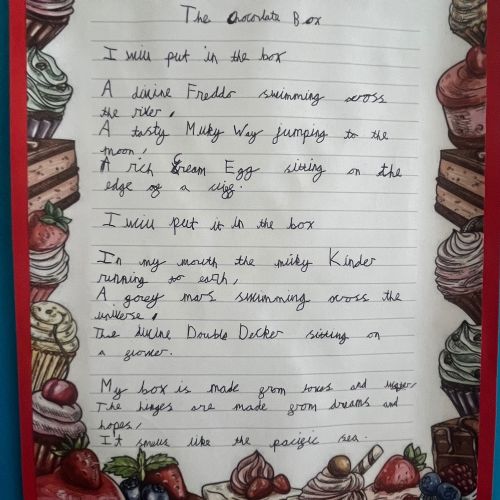 The Chocolate Box
I will put in the box
A divine Freddo swimming across
the river,
A tasty Milky Way jumping to the
moon,
A rich Cream Egg sitting on the
edge of a
I will put it in the box
In my mouth the milky Kinder
running to earth,
A gorey mars swimming across the
universe,
The divine Double Decker sitting on
a flower.
My box is made from and
The hinges are made from dreams and
hopes,
It smells like the pacific sea.